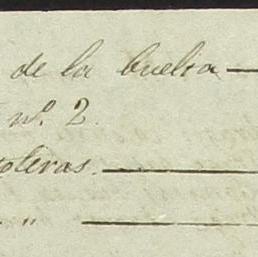 de la buelta —
nº. 2.
oleras. —
" —